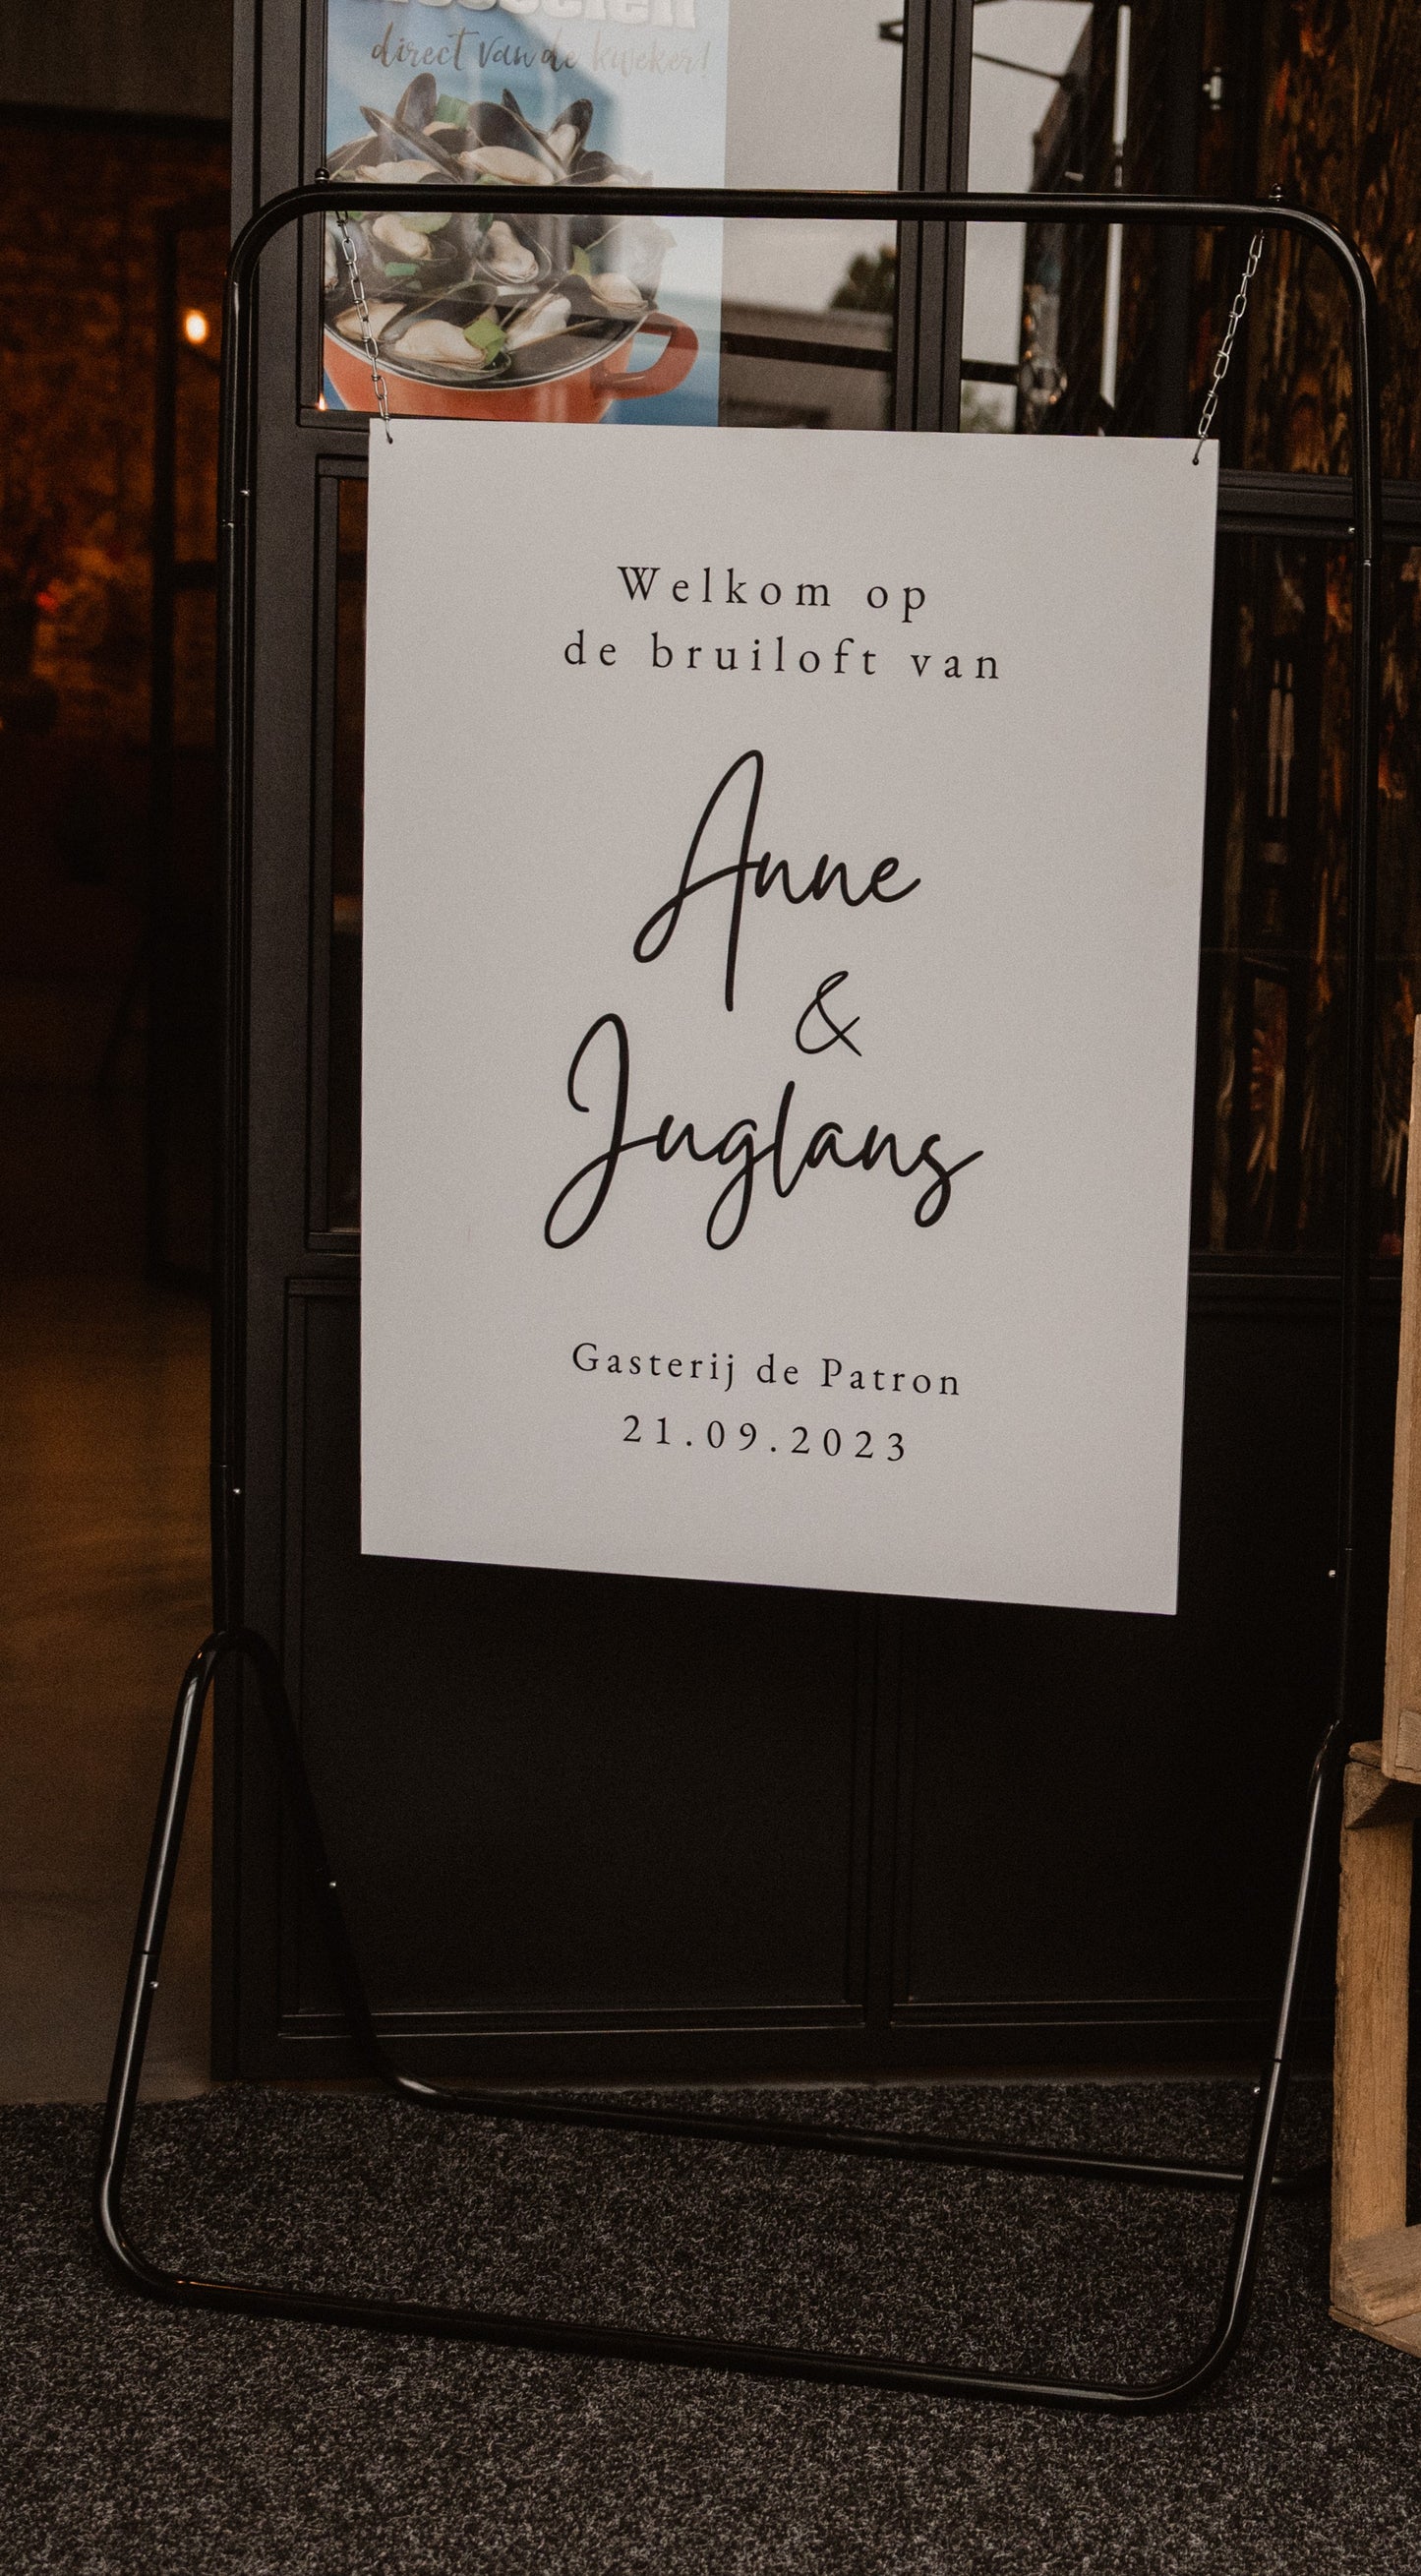 direct van de kweker!
Welkom op
de bruiloft van
Anne
&
Juglans
Gasterij de Patron
21.09.2023